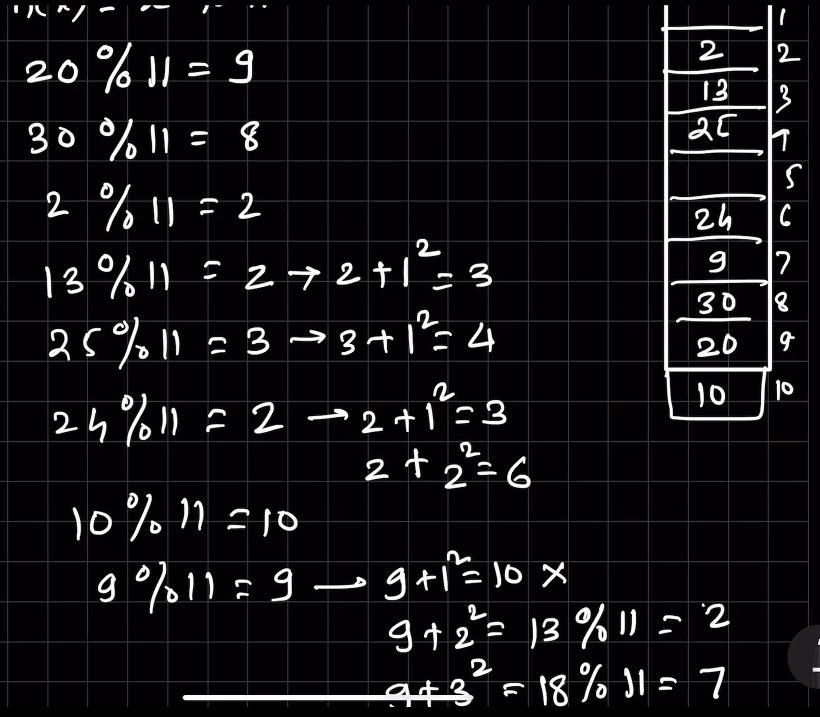 20 % 11 = 9
30 % 11 = 8
2 % 11 = 2
13 % 11 = 2 → 2 + 1² = 3
25 % 11 = 3 → 3 + 1² = 4
24 % 11 = 2 → 2 + 1² = 3
2 + 2² = 6
10 % 11 = 10
9 % 11 = 9 — 9 + 1² = 10 ×
9 + 2² = 13 % 11 = 2
9 + 3² = 18 % 11 = 7
1
2 2
13 3
25 4
5
24 6
9 7
30 8
20 9
10 10